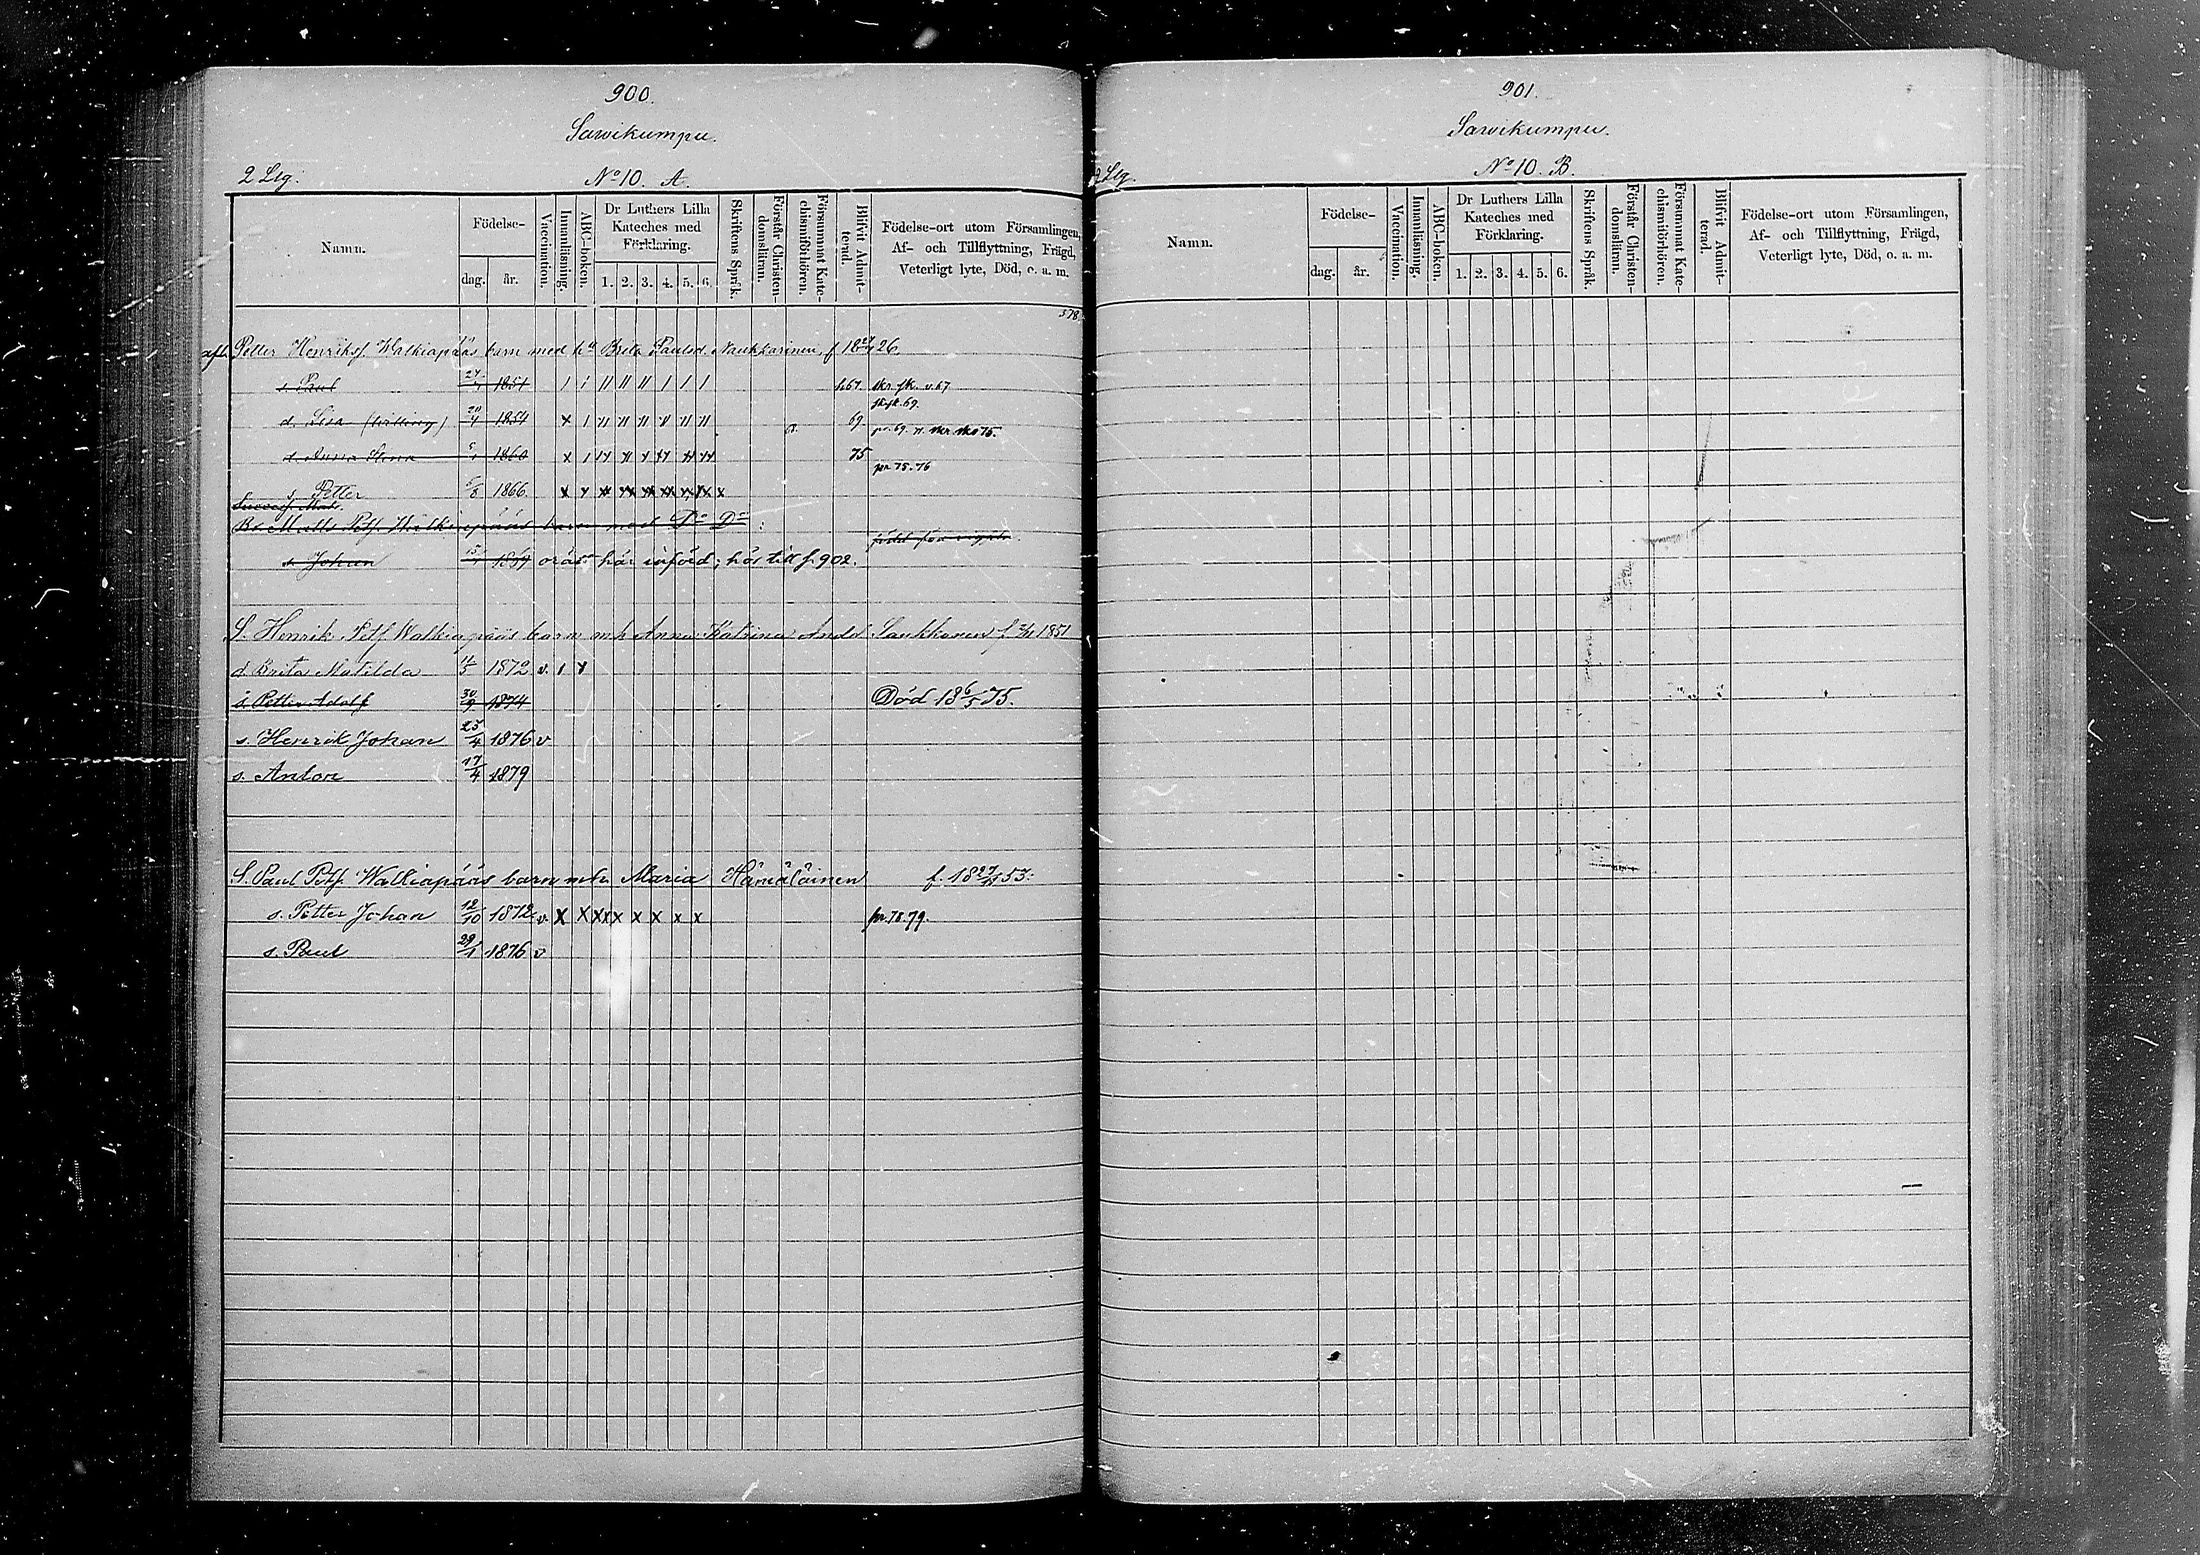 900.
Sarvikumpu.
2 Leg. No 10. A.
Namn. Födelse- dag. år. Vaccination. Innanläsning. ABC-boken. Dr Luthers Lilla Kateches med Förklaring. 1. 2. 3. 4. 5. 6. Skriftens Språk. Förstår Christendomsläran. Försummat Katechismiförhören. Blifvit Admitterad. Födelse-ort utom Församlingen, Af- och Tillflyttning, Frägd, Veterligt lyte, Död, o. a. m.
578
Petter Henriksf. Walkiapääs barn med h. Brita Paulsd. Naukkarinen, f. 18 26.
s. Paul 1851 67
d. Lisa (tvilling) 1854 69.
d. Anna Stina 1860 75 pr 75. 76
s. Petter 5/8 1866
Petf. Walkiapääs barn med Do Do:
s. Johan här införd; hör till p. 902.
S. Henrik Petf. Walkiapääs barn m. h. Anna Katrina Andd Laukkanen f. 1851
d. Brita Matilda 11/5 1872 v.
s. Petter Adolf 30/9 1874 Död 18 6/5 75.
s. Henrik Johan 23/4 1876 v
s. Anton 17/4 1879
S. Paul Petf. Walkiapääs barn m. h. Maria Hämäläinen f. 18 53.
s. Petter Johan 12/10 1872 v. X X pr. 78. 79.
s. Paul 29/1 1876 v
901.
Sarvikumpu.
2 Leg. No 10. B.
Namn. Födelse- dag. år. Vaccination. Innanläsning. ABC-boken. Dr Luthers Lilla Kateches med Förklaring. 1. 2. 3. 4. 5. 6. Skriftens Språk. Förstår Christendomsläran. Försummat Katechismiförhören. Blifvit Admitterad. Födelse-ort utom Församlingen, Af- och Tillflyttning, Frägd, Veterligt lyte, Död, o. a. m.